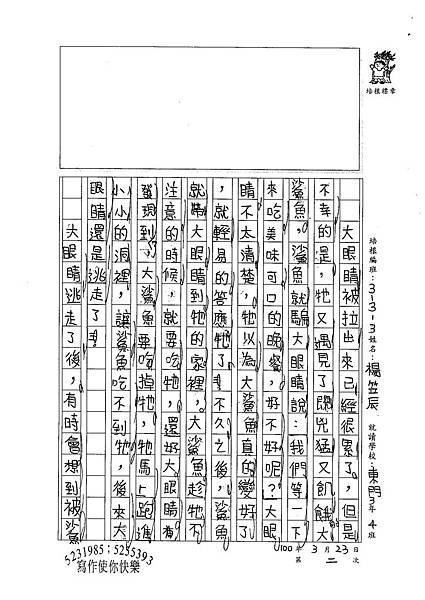 培根標章
培根編班：3-3-3 姓名：楊笠辰 就讀學校：東門3年4班
100年3月23日
第二次
大眼睛被拉出來已經很累了，但是
不幸的是，牠又遇見了既兇猛又飢餓大
鯊魚，鯊魚就騙大眼睛說：我們等一下
來吃美味可口的晚餐，好不好呢？大眼
睛不太清楚，牠以為大鯊魚真的變好了
，就輕易的答應牠了！不久之後，鯊魚
就大眼睛到牠的家裡，大鯊魚趁牠不
注意的時候，就要吃牠，還好大眼睛有
發現到，大鯊魚要吃掉牠，牠馬上跑進
小小的洞裡，讓鯊魚吃不到牠，後來大
眼睛還是逃走了！
大眼睛逃走了後，有時會想到被鯊
5231985；5255393
寫作使你快樂